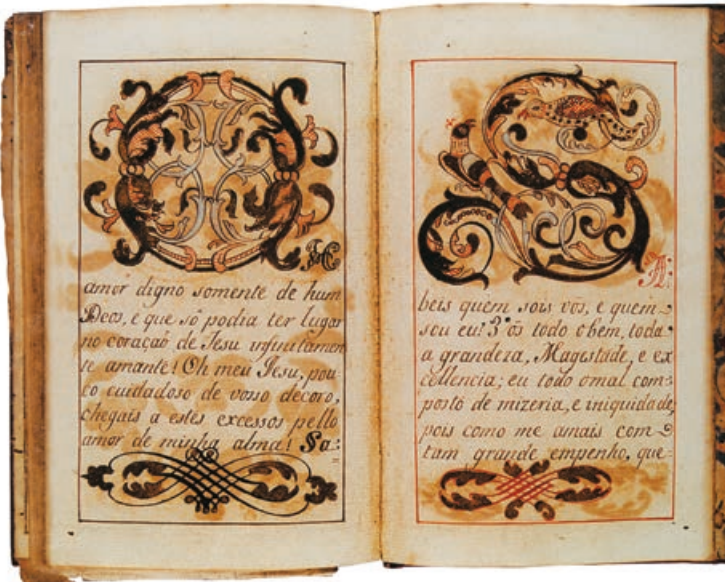 O
H
amor digno somente de hum
Deos, e que só podia ter lugar
no coraçaõ de Jesu infinitamen
te amante! Oh meu Jesu, pou
co cuidadoso de vosso decoro,
chegais a estes excessos pello
amor de minha alma! Sa:
S
A:
beis quem sois vòs, e quem
sou eu? Vòs todo obem, toda
a grandeza, Magistade, e ex
cellencia; eu todo omal com:
posto de mizeria, e iniquidade,
pois como me amais com
tam grande empenho, que